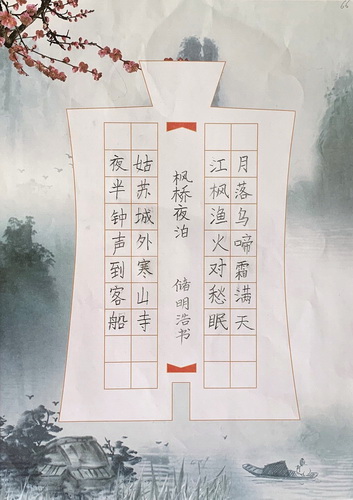 月落乌啼霜满天
江枫渔火对愁眠
枫桥夜泊
储明浩书
姑苏城外寒山寺
夜半钟声到客船